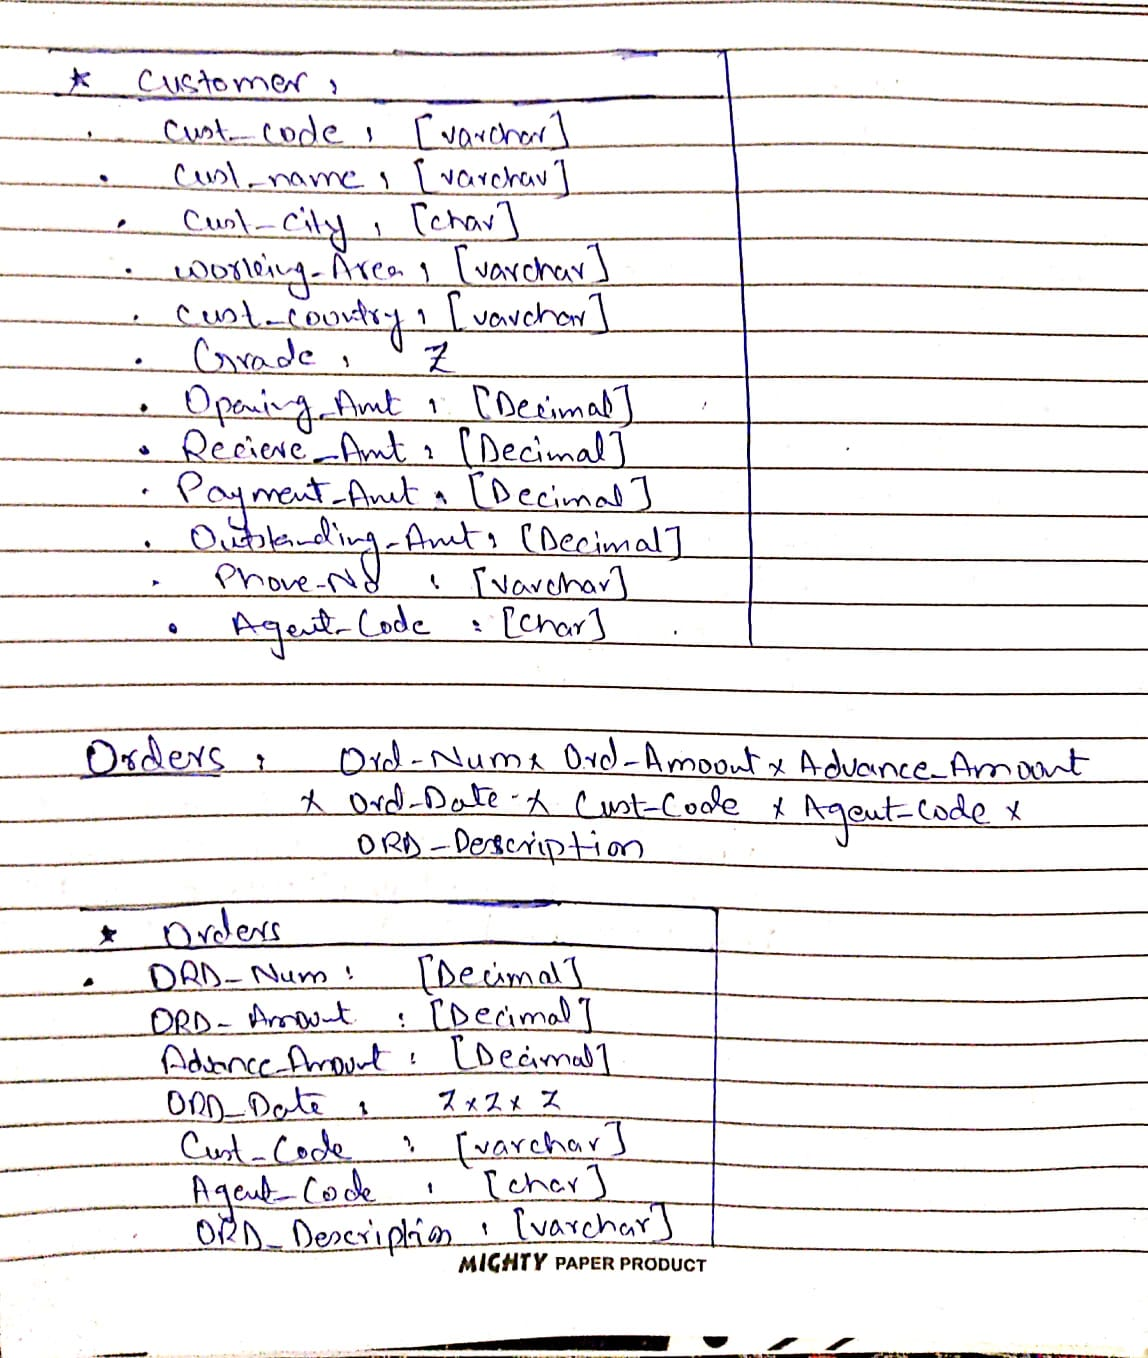 * Customer :
• Cust_code : [varchar]
• Cust_name : [varchar]
• Cust_City : [char]
• Working_Area : [varchar]
• Cust_Country : [varchar]
• Grade : Z
• Opening_Amt : [Decimal]
• Recieve_Amt : [Decimal]
• Payment_Amt : [Decimal]
• Outstanding_Amt : [Decimal]
• Phone_No : [varchar]
• Agent_Code : [char]
Orders : Ord_Num x Ord_Amount x Advance_Amount
x Ord_Date x Cust_Code x Agent_Code x
ORD_Description
* Orders
• ORD_Num : [Decimal]
ORD_Amount : [Decimal]
Advance_Amount : [Decimal]
ORD_Date : Z x Z x Z
Cust_Code : [varchar]
Agent_Code : [char]
ORD_Description : [varchar]
MIGHTY PAPER PRODUCT